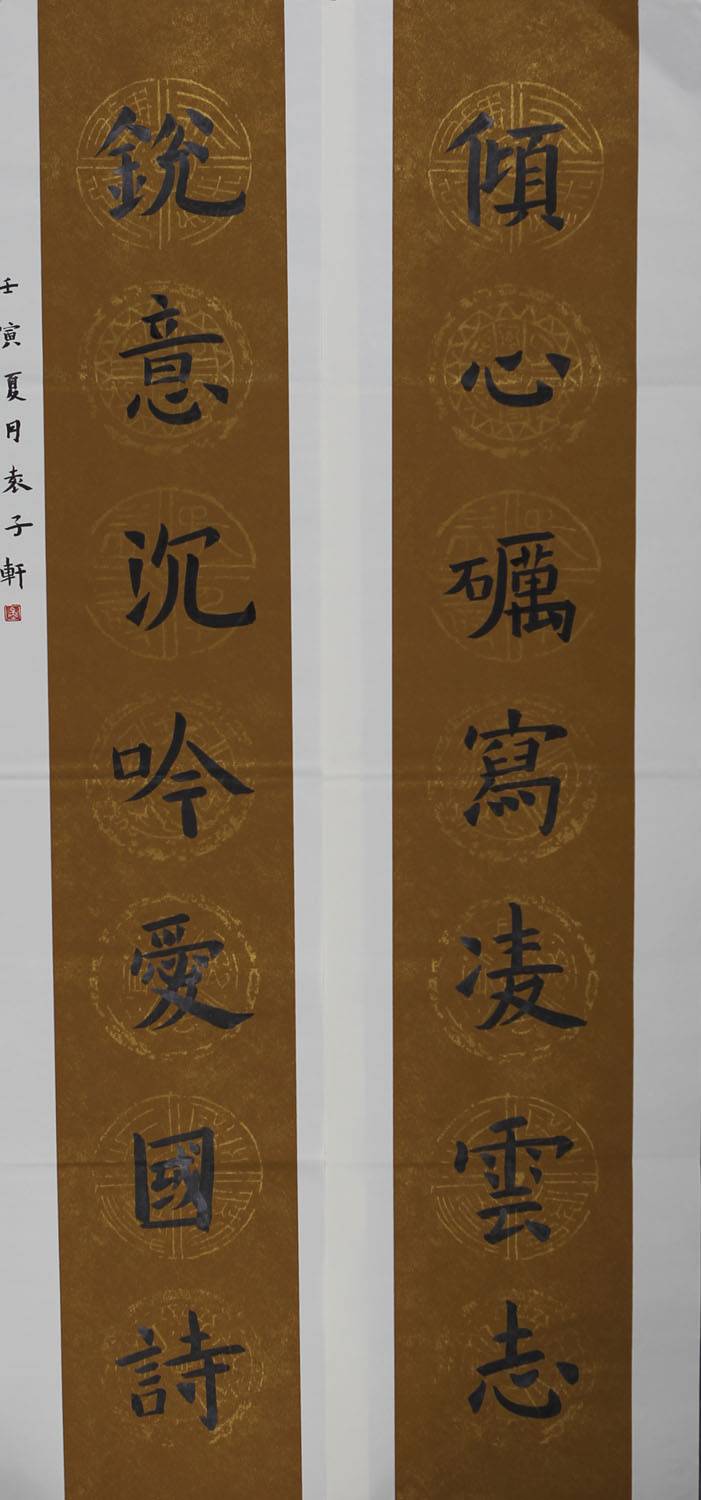 傾心礪寫凌雲志
銳意沉吟愛國詩
壬寅夏月袁子軒